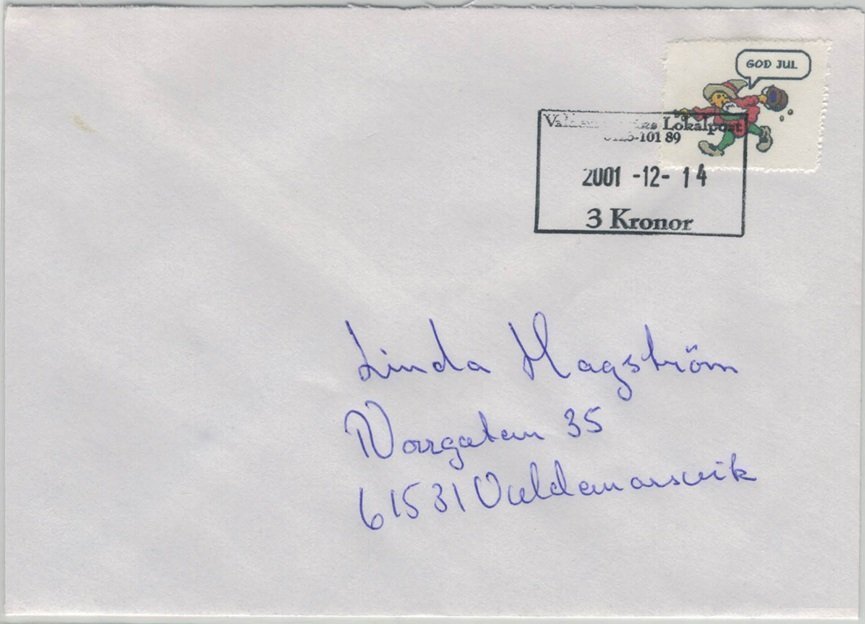 GOD JUL
Lokalpost
-101 89
2001 -12- 14
3 Kronor
Linda Hagström
Norrgatan 35
61531 Valdemarsvik